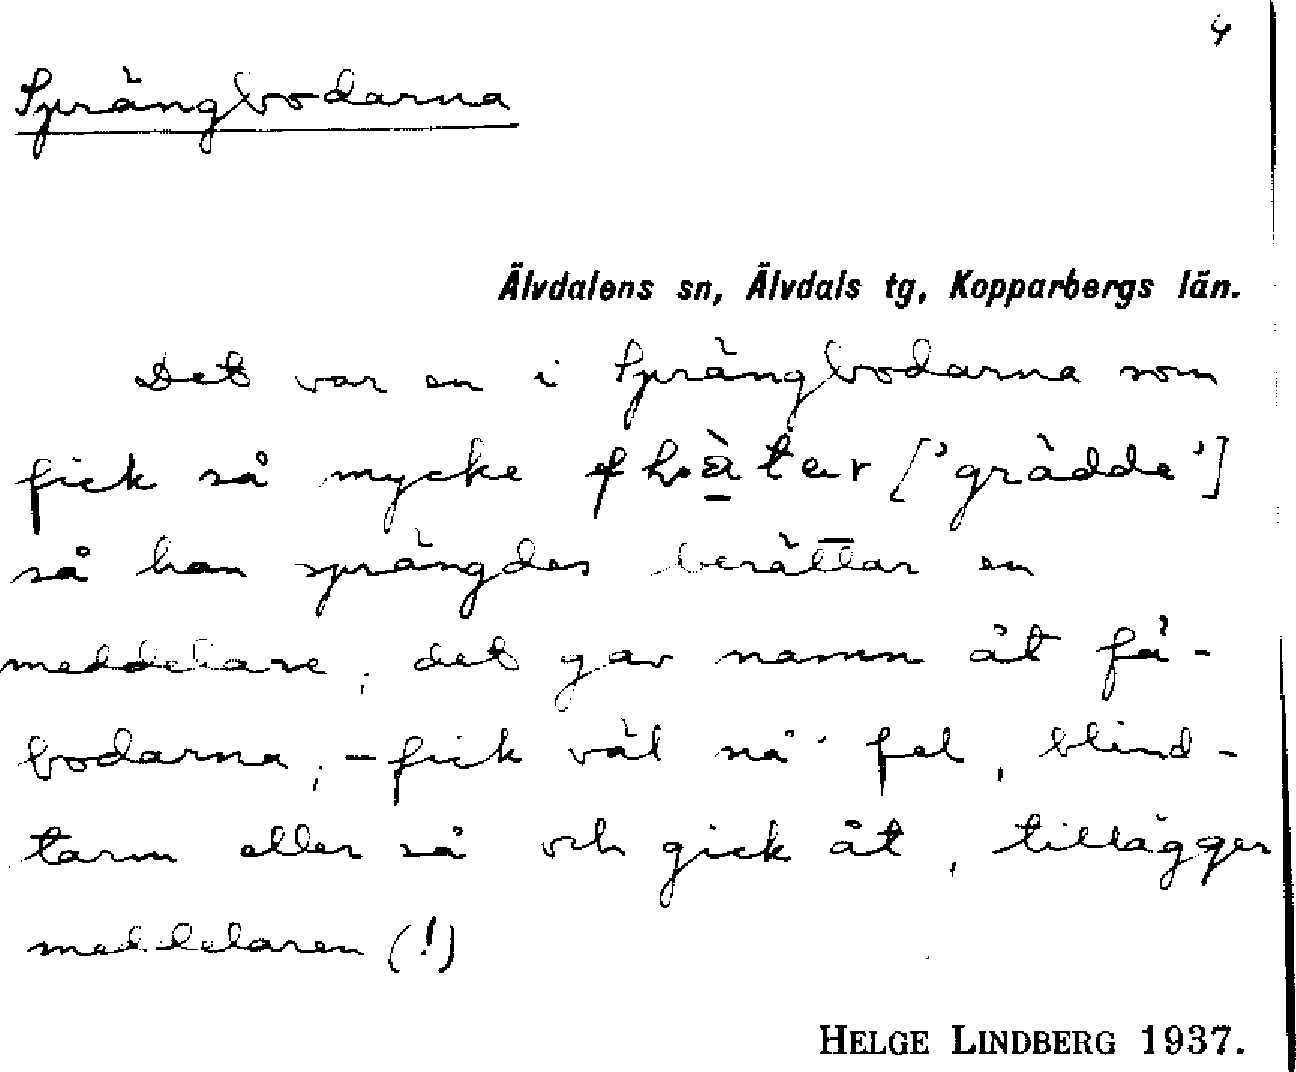 4
Sprängbodarna
Älvdalens sn, Älvdals tg, Kopparbergs län.
Det var en i Sprängbodarna som
fick så mycke ['grädde']
så han sprängdes berättar en
meddelare, det gav namn åt få-
bodarna, - fick väl nå' fel, blind-
tarm eller så och gick åt, tillägger
meddelaren (!)
HELGE LINDBERG 1937.